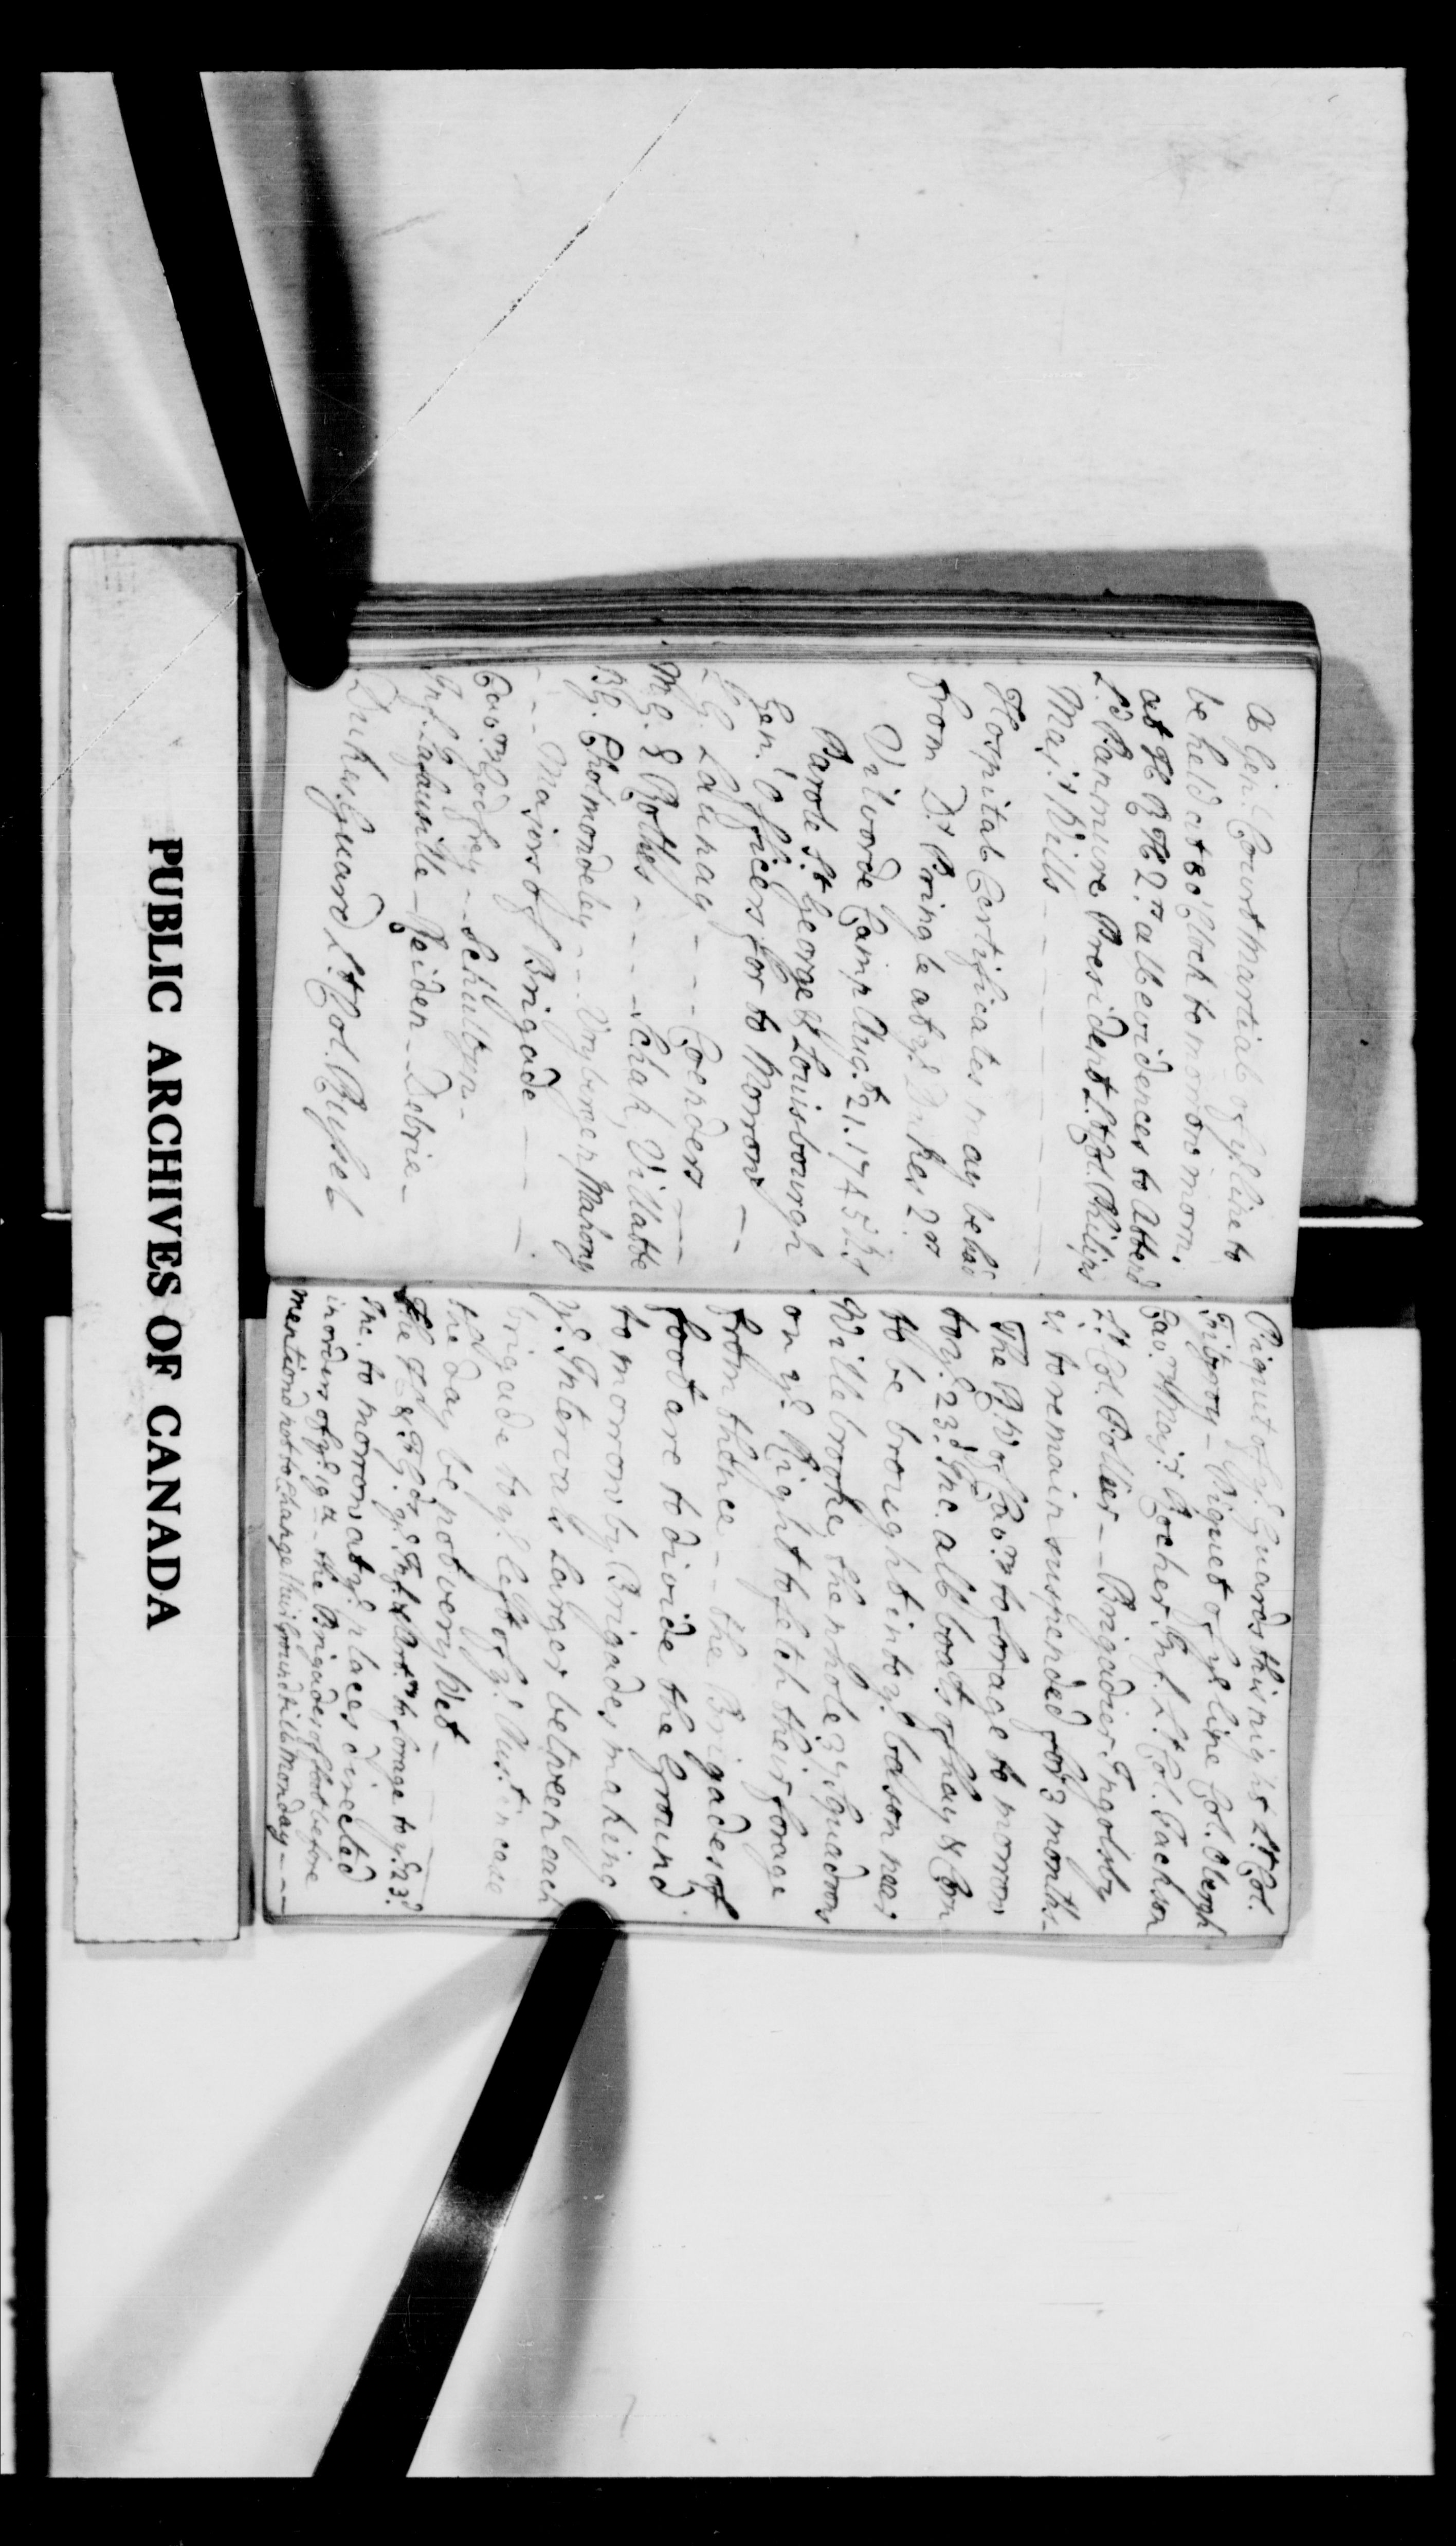 A Gen.l Court Martial of ye line to
be held at 8 o'Clock to morrow morn.
at H R H Q.rs all evidences to Attend
L.d Panmure President L.t Col. Philips
Maj.r Wills - - - - - -
Hospital Certificates may be had
from D.r Pringle at ye Dukes Q.rs
Vilvorde Camp Aug.t 21. 1745
Parole St George & Louisbourgh
Gen.l Officers for to Morrow - -
L G. Launay - - - Coenders -
M G. E Rothes - - - Schak, Villatte
B G. Cholmondeley - - Mahony
- - - Majors of Brigade - - -
Cav.ry Godfrey - Schultzen -
Inf. Lafausille - Reiden - Debrie -
Dukes Guard L.t Col. Russel
Piquet of ye Guards this night L.t Col.
Fitzroy - Piquet of ye line Col. Obergh
Cav. Maj.r Cocher. Inf. L.t Col. Jackson
L.t Col. Potter - - Brigadier Ingolsby
is to remain suspended for 3 months -
The R W of Cav.ry to forage to morrow
to ye 23.d Inc. all boats of hay & Corn
to be brought into ye bason near
Willebrooke, the whole 37 Squadrons
on ye Right to fetch their forage
from thence - - the Brigades of
foot are to divide the Ground
to morrow by Brigades making
ye Intervals larger between each
Brigade to ye left of ye Aust. in case
the day be not very Wet -
The to forage to ye 23.d
Inc. to morrow at ye places directed
in orders of ye 19th - the Brigades of foot before
mention'd not to Change their Ground till Monday - - -
PUBLIC ARCHIVES OF CANADA